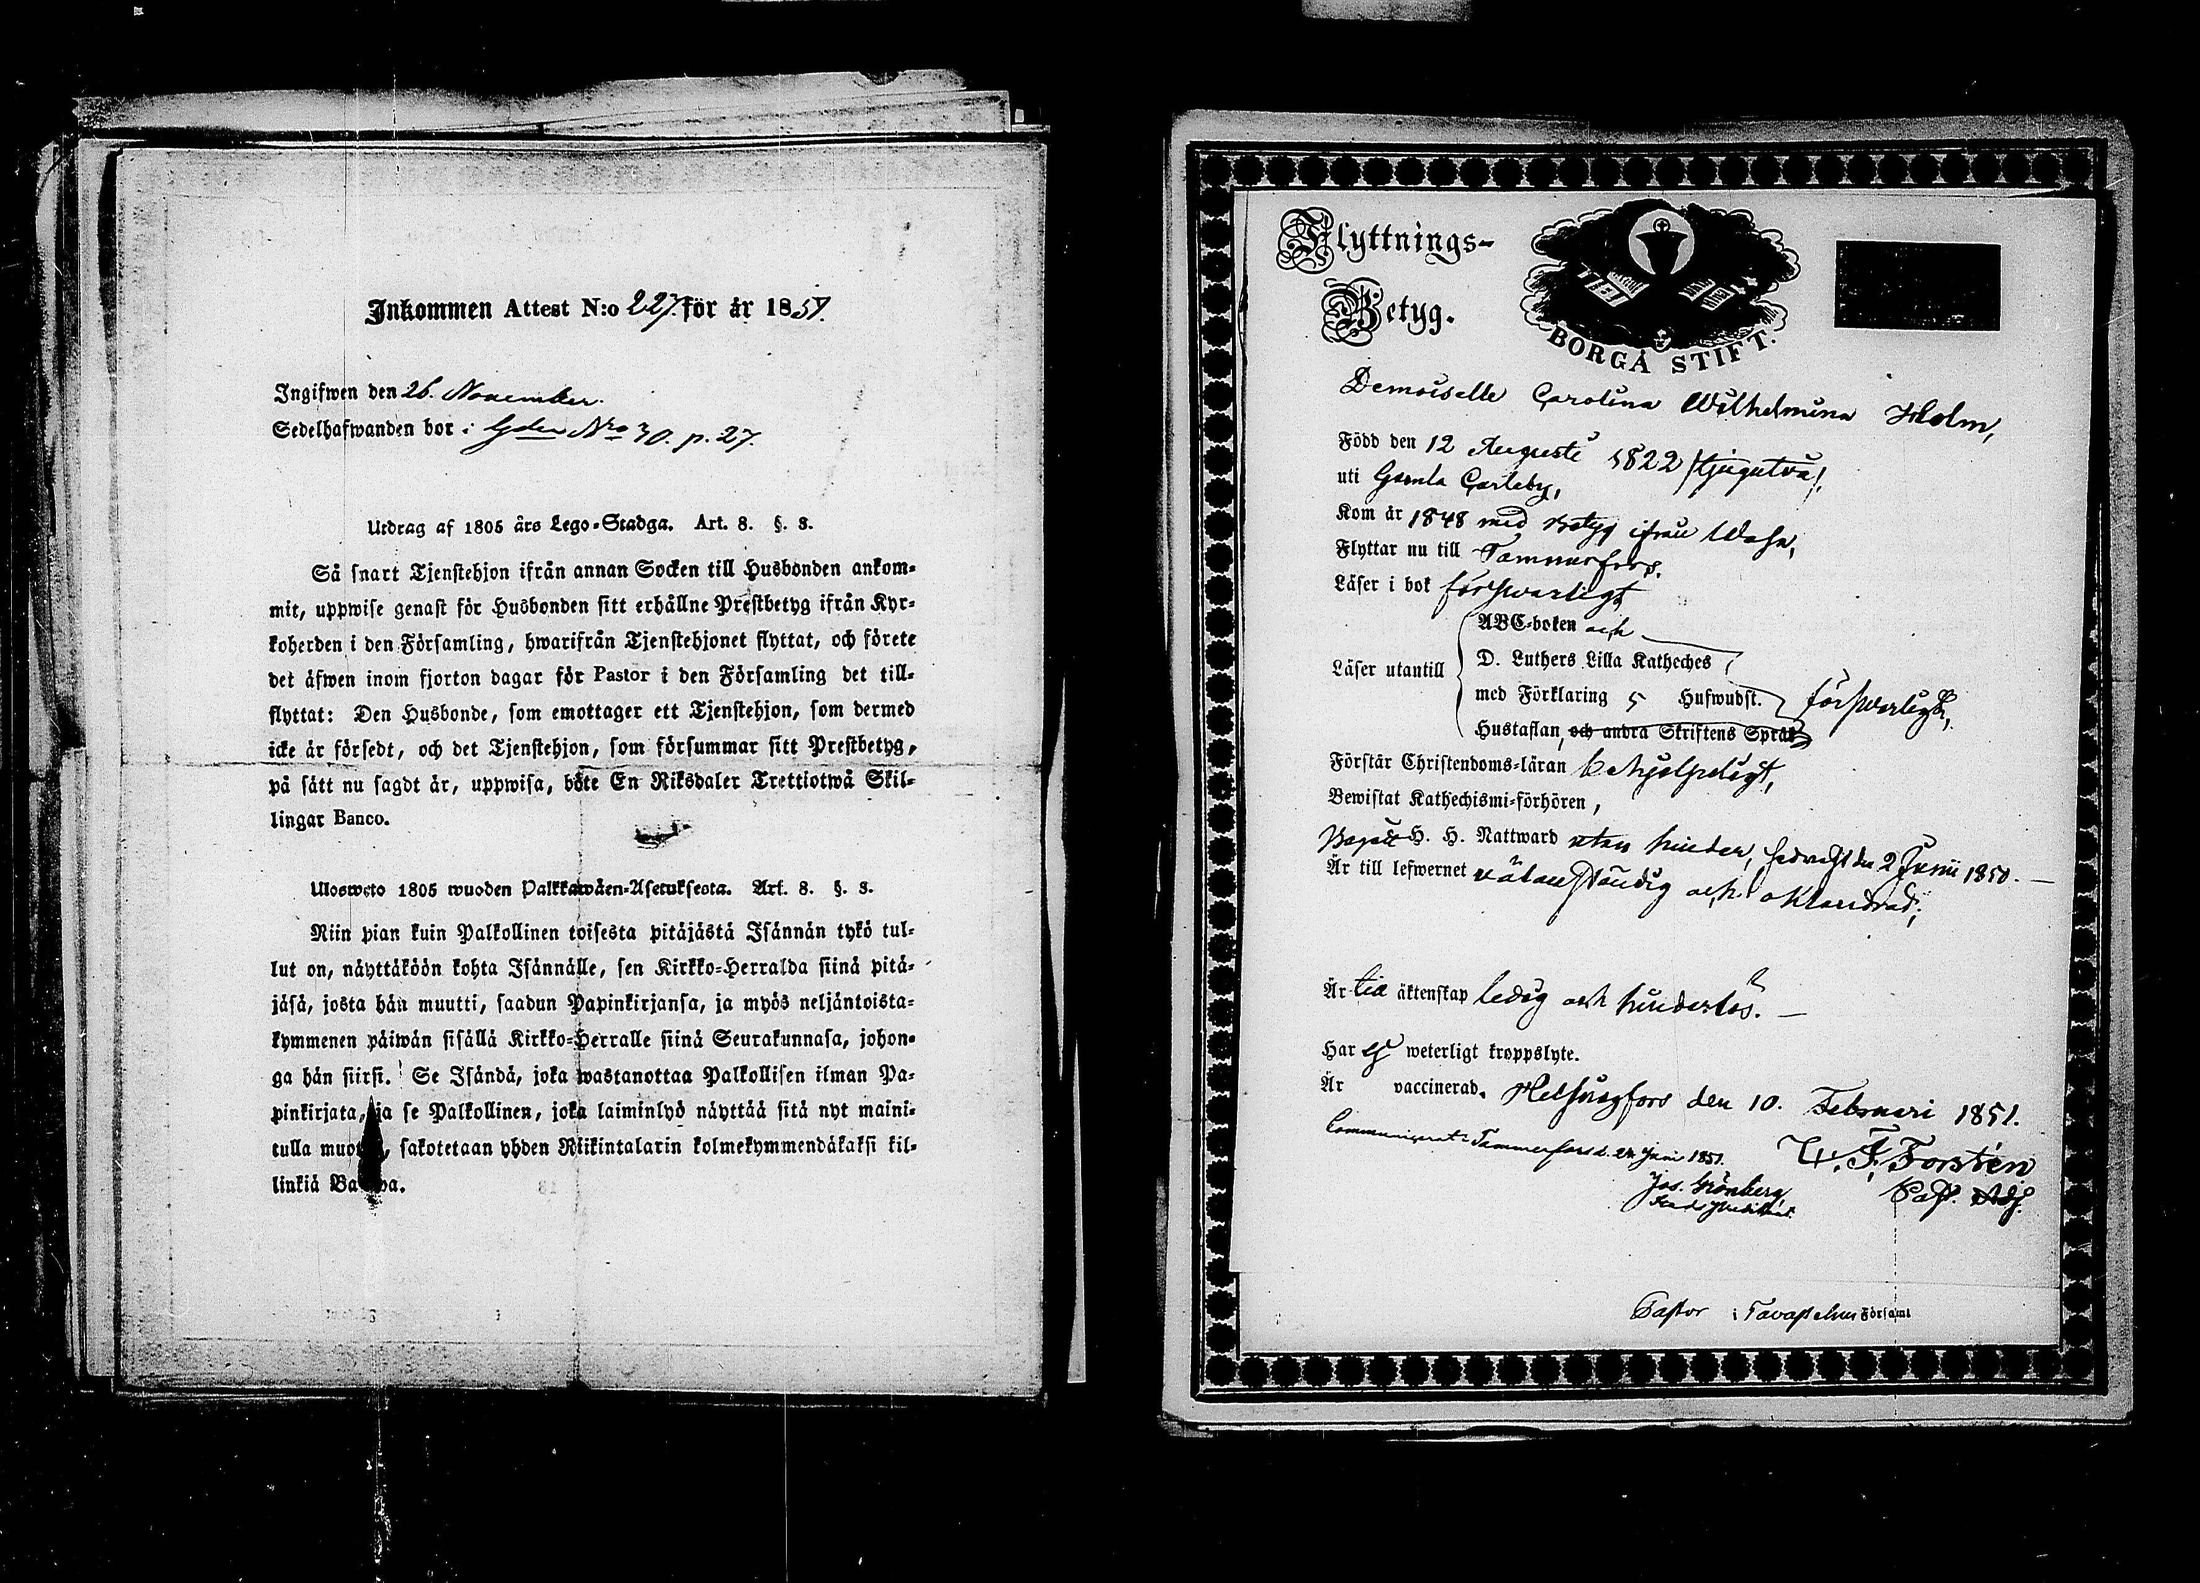 Inkommen Attest N:o 227. för år 1851.
Ingifwen den 26. November.
Sedelhafwanden bor i Gden Nro 30. p. 27.
Utdrag af 1805 års Lego-Stadga. Art. 8. §. 8.
Så snart Tjenstehjon ifrån annan Socken till Husbonden ankom-
mit, uppwise genast för Husbonden sitt erhållne Prestbetyg ifrån Kyr-
koherden i den Församling, hwarifrån Tjenstehjonet flyttat, och förete
det äfwen inom fjorton dagar för Pastor i den Församling det till-
flyttat: Den Husbonde, som emottager ett Tjenstehjon, som dermed
icke är försedt, och det Tjenstehjon, som försummar sitt Prestbetyg,
på sätt nu sagdt är, uppwisa, böte En Riksdaler Trettiotwå Skil-
lingar Banco.
Ulosweto 1805 wuoden Palkkawäen-Asetuksesta. Art. 8. §. 8.
Niin pian kuin Palkollinen toisesta pitäjästä Isännän tykö tul-
lut on, näyttäköön kohta Isännälle, sen Kirkko-Herralda siinä pitä-
jäsä, josta hän muutti, saadun Papinkirjansa, ja myös neljäntoista-
kymmenen päiwän sisällä Kirkko-Herralle siinä Seurakunnasa, johon-
ga hän siirsi. Se Isändä, joka wastanottaa Palkollisen ilman Pa-
pinkirjata, ja se Palkollinen, joka laiminlyö näyttää sitä nyt maini-
tulla muo , sakotetaan yhden Riikintalarin kolmekymmendäkaksi kil-
linkiä Ba a.
Flyttnings-
Betyg.
BORGÅ STIFT.
Demoiselle Carolina Wilhelmina Holm,
Född den 12 Augusti 1822 /tjugutvå/,
uti Gamla Carleby,
Kom år 1848 med Betyg ifrån Wasa,
Flyttar nu till Tammerfors.
Läser i bok förswarligt
ABC-boken och
Läser utantill D. Luthers Lilla Katheches
med Förklaring 5 Hufwudst. förswarligt,
Hustaflan, och andra Skriftens Språk
Förstår Christendoms-läran behjelpeligt,
Bewistat Kathechismi-förhören,
Begått H. H. Nattward utan hinder, sednast den 2 Junii 1850.
Är till lefwernet väl anständig och oklandrad;
Är till äktenskap ledig och hinderlös.
Har ej weterligt kroppslyte.
Är vaccinerad. Helsingfors den 10. Februari 1851.
Communicerat: Tammerfors d. 24 Juni 1851. W. F. Forstén
Jos. Grönberg, Past. Adj.
Pastor i Tavastehus Församl